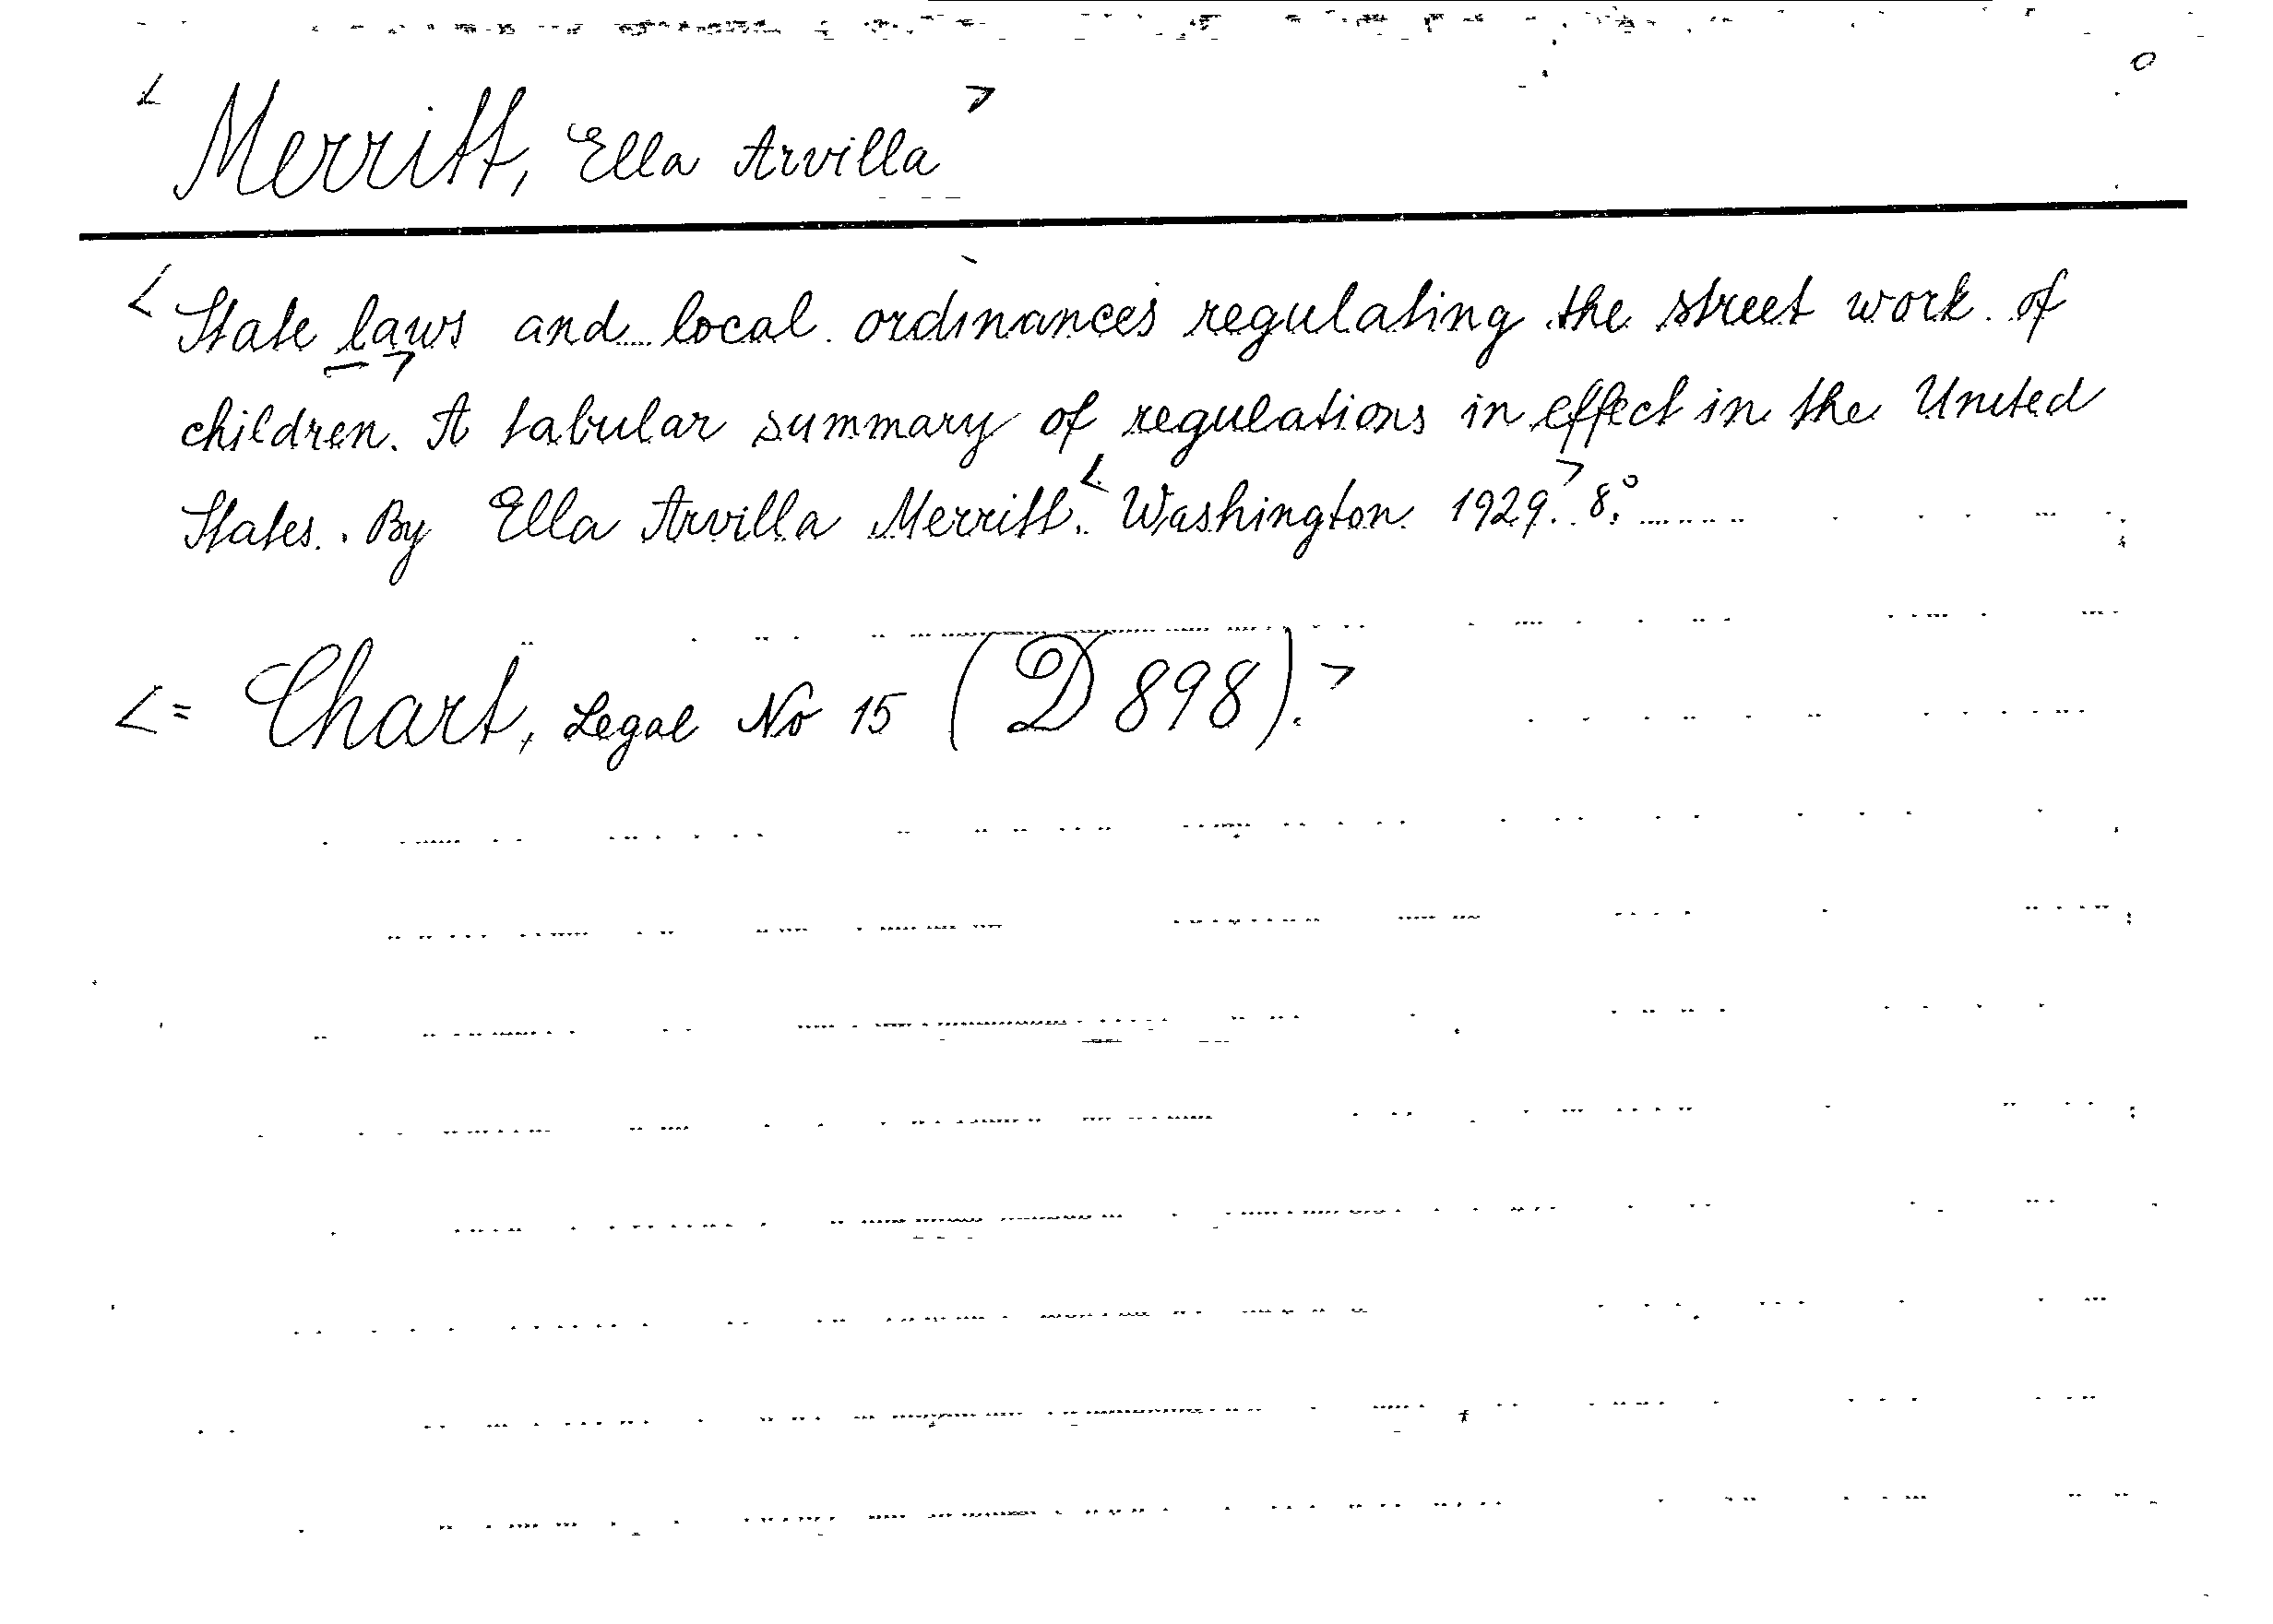 < Merritt, Ella Arvilla >
< State laws > and local ordinances regulating the street work of
children. A tabular summary of regulations in effect in the United
States. By Ella Arvilla Merritt. < Washington 1929. > 8.°
< = Chart, Legal No 15 (D 898). >